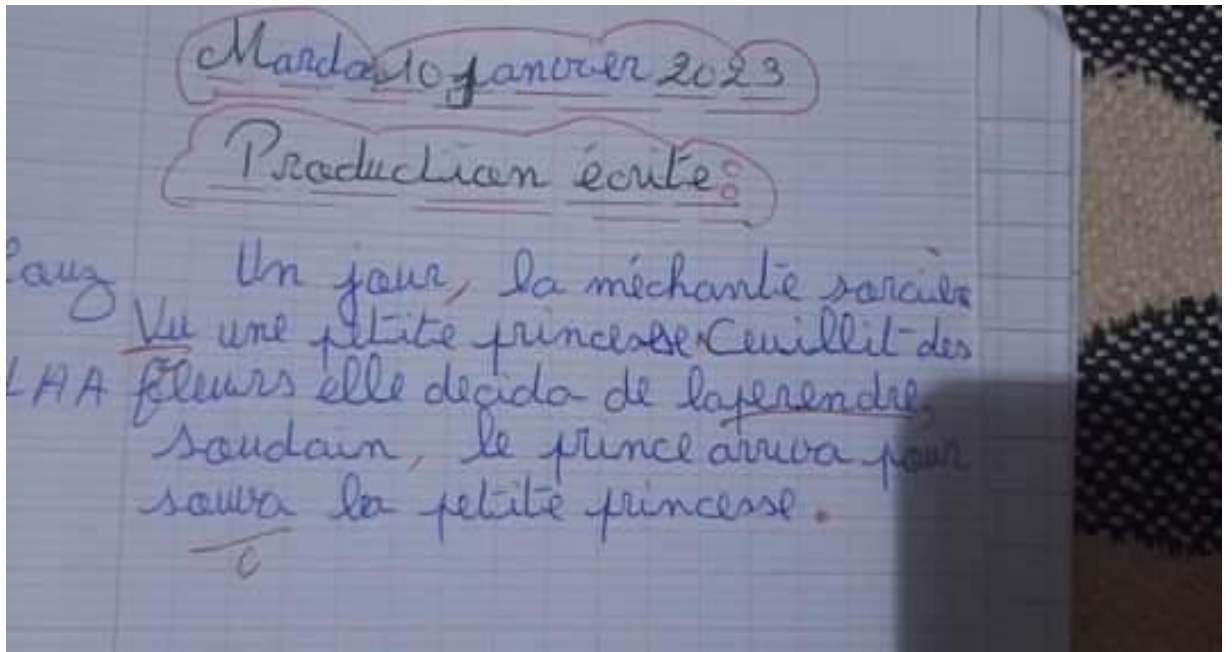 Marda 10 janvier 2023
Production écrite:
Un jour, la méchante sorcière
Vu une petite princesse. Ceuillit des
LAA fleurs elle decida de laperendre,
soudain, le prince arriva pour
sauva la petite princesse.
c